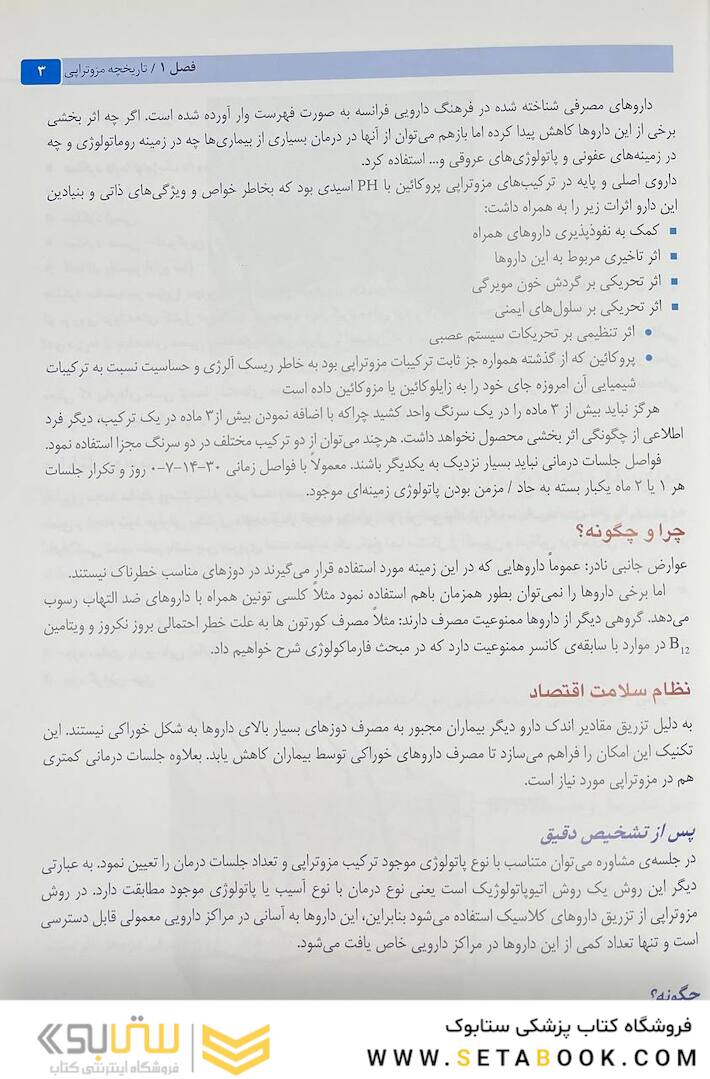 فصل ۱ / تاریخچه مزوتراپی ۳
داروهای مصرفی شناخته شده در فرهنگ دارویی فرانسه به صورت فهرست وار آورده شده است. اگر چه اثر بخشی
برخی از این داروها کاهش پیدا کرده اما بازهم می‌توان از آنها در درمان بسیاری از بیماری‌ها چه در زمینه روماتولوژی و چه
در زمینه‌های عفونی و پاتولوژی‌های عروقی و... استفاده کرد.
داروی اصلی و پایه در ترکیب‌های مزوتراپی پروکائین با PH اسیدی بود که بخاطر خواص و ویژگی‌های ذاتی و بنیادین
این دارو اثرات زیر را به همراه داشت:
■ کمک به نفوذپذیری داروهای همراه
■ اثر تاخیری مربوط به این داروها
■ اثر تحریکی بر گردش خون مویرگی
■ اثر تحریکی بر سلول‌های ایمنی
● اثر تنظیمی بر تحریکات سیستم عصبی
● پروکائین که از گذشته همواره جز ثابت ترکیبات مزوتراپی بود به خاطر ریسک آلرژی و حساسیت نسبت به ترکیبات
شیمیایی آن امروزه جای خود را به زایلوکائین یا مزوکائین داده است
هرگز نباید بیش از ۳ ماده را در یک سرنگ واحد کشید چراکه با اضافه نمودن بیش از۳ ماده در یک ترکیب، دیگر فرد
اطلاعی از چگونگی اثر بخشی محصول نخواهد داشت. هرچند می‌توان از دو ترکیب مختلف در دو سرنگ مجزا استفاده نمود.
فواصل جلسات درمانی نباید بسیار نزدیک به یکدیگر باشند. معمولاً با فواصل زمانی ۳۰-۱۴-۷-۰ روز و تکرار جلسات
هر ۱ یا ۲ ماه یکبار بسته به حاد / مزمن بودن پاتولوژی زمینه‌ای موجود.
چرا و چگونه؟
عوارض جانبی نادر: عموماً داروهایی که در این زمینه مورد استفاده قرار می‌گیرند در دوزهای مناسب خطرناک نیستند.
اما برخی داروها را نمی‌توان بطور همزمان باهم استفاده نمود مثلاً کلسی تونین همراه با داروهای ضد التهاب رسوب
می‌دهد. گروهی دیگر از داروها ممنوعیت مصرف دارند: مثلاً مصرف کورتون ها به علت خطر احتمالی بروز نکروز و ویتامین
B₁₂ در موارد با سابقه‌ی کانسر ممنوعیت دارد که در مبحث فارماکولوژی شرح خواهیم داد.
نظام سلامت اقتصاد
به دلیل تزریق مقادیر اندک دارو دیگر بیماران مجبور به مصرف دوزهای بسیار بالای داروها به شکل خوراکی نیستند. این
تکنیک این امکان را فراهم می‌سازد تا مصرف داروهای خوراکی توسط بیماران کاهش یابد. بعلاوه جلسات درمانی کمتری
هم در مزوتراپی مورد نیاز است.
پس از تشخیص دقیق
در جلسه‌ی مشاوره می‌توان متناسب با نوع پاتولوژی موجود ترکیب مزوتراپی و تعداد جلسات درمان را تعیین نمود. به عبارتی
دیگر این روش یک روش اتیوپاتولوژیک است یعنی نوع درمان با نوع آسیب یا پاتولوژی موجود مطابقت دارد. در روش
مزوتراپی از تزریق داروهای کلاسیک استفاده می‌شود بنابراین، این داروها به آسانی در مراکز دارویی معمولی قابل دسترسی
است و تنها تعداد کمی از این داروها در مراکز دارویی خاص یافت می‌شود.
چگونه؟
فروشگاه کتاب پزشکی ستابوک
WWW.SETABOOK.COM
ستابوک
فروشگاه اینترنتی کتاب